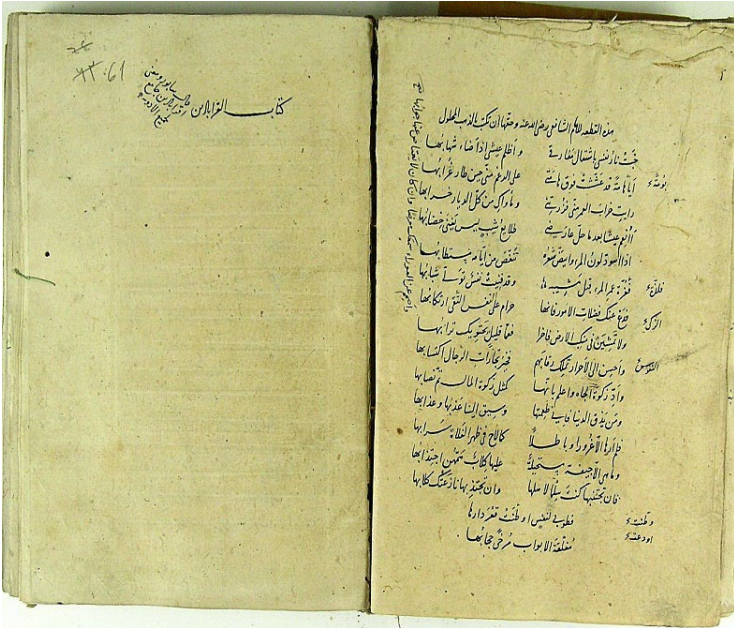 هذه القطعة للامام الشافعى رضى الله عنه وحقها ان تكتب بالذهب المحلول
خبت نار نفسى باشتعال مفارقى واظلم عيشى اذ اضاء شهابها
بومة
أيا هامة قد عششت فوق هامتى على الرغم منى حين طار غرابها
رايت خراب العمر منى فزرتنى ومأواك من كل الديار خرابها
أأنعم عيشا بعد ما حل عارضى طلايع شيب ليس يغنى خضابها
اذا اسود لون المرء وابيض شعره تنغص من ايامه مستطابها
فغرة عمر المرء قبل مشيبه وقد فنيت نفس تولى شبابها
فدع عنك فضلات الامور فانها حرام على نفس التقى ارتكابها
ولا تمشين فى منكب الارض فاخرا فعما قليل يحتويك ترابها
واحسن الى الاحرار تملك رقابهم فخير تجارات الرجال اكتسابها
واد زكوة الجاه واعلم بانها كمثل زكوة المال تم نصابها
ومن يذق الدنيا فانى طعمتها وسيق الينا عذبها وعذابها
فلم ارها الا غرورا وباطلا كما لاح فى ظهر الفلاة سرابها
وما هى الا جيفة مستحيلة عليها كلاب همهن اجتذابها
فان تجتنبها كنت سلما لاهلها وان تجتذبها نازعتك كلابها
فطوبى لنفس اوطنت قعر دارها
مغلقة الابواب مرخى حجابها
كتاب القرابادين